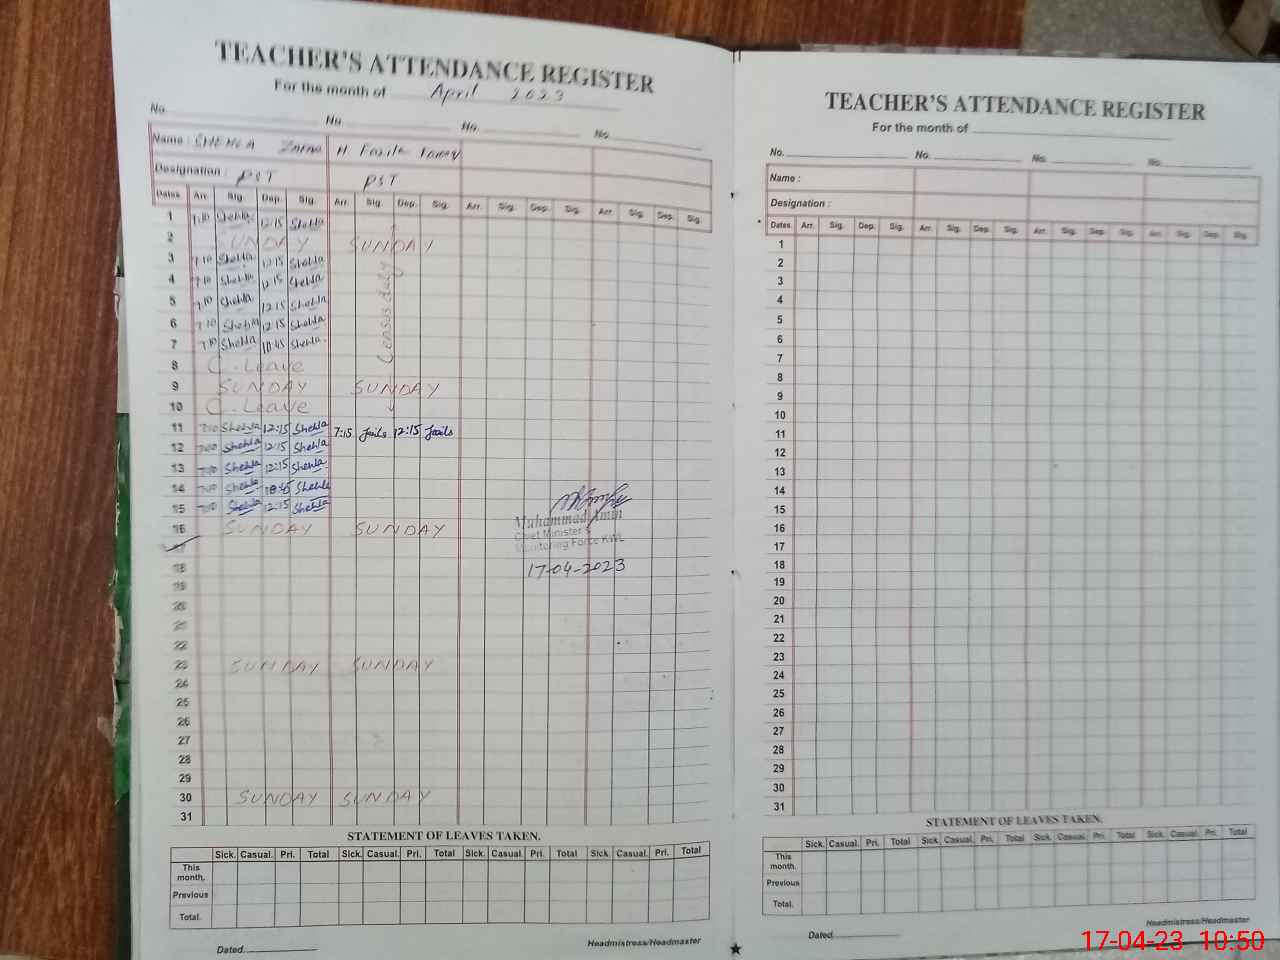 TEACHER'S ATTENDANCE REGISTER
For the month of April 2023
No. No. No. No.
Name : H
Designation : PST PST
Dates Arr. Sig. Dep. Sig. Arr. Sig. Dep. Sig. Arr. Sig. Dep. Sig. Arr. Sig. Dep. Sig.
1 7:10 Shehla 12:15 Shehla
2 SUNDAY SUNDAY
3 7:10 Shehla 12:15 Shehla
4 7:10 Shehla 12:15 Shehla
5 7:10 Shehla 12:15 Shehla
6 7:10 Shehla 12:15 Shehla
7 7:10 Shehla 10:45 Shehla
Census duty
8 C. Leave
9 SUNDAY SUNDAY
10 C. Leave
11 7:10 Shehla 12:15 Shehla 7:15 12:15
12 7:10 Shehla 12:15 Shehla
13 7:10 Shehla 12:15 Shehla
14 7:10 Shehla 10:45 Shehla
15 7:10 Shehla 12:15 Shehla
16 SUNDAY SUNDAY
Muhammad Amin
Chief Minister's
Monitoring Force KWL
17-04-2023
17
18
19
20
21
22
23 SUNDAY SUNDAY
24
25
26
27
28
29
30 SUNDAY SUNDAY
31
STATEMENT OF LEAVES TAKEN.
Sick. Casual. Pri. Total Sick. Casual. Pri. Total Sick. Casual. Pri. Total Sick. Casual. Pri. Total
This
month.
Previous
Total.
Dated. Headmistress/Headmaster
TEACHER'S ATTENDANCE REGISTER
For the month of
No. No. No. No.
Name :
Designation :
Dates Arr. Sig. Dep. Sig. Arr. Sig. Dep. Sig. Arr. Sig. Dep. Sig. Arr. Sig. Dep. Sig.
1
2
3
4
5
6
7
8
9
10
11
12
13
14
15
16
17
18
19
20
21
22
23
24
25
26
27
28
29
30
31
STATEMENT OF LEAVES TAKEN.
Sick. Casual. Pri. Total Sick. Casual. Pri. Total Sick. Casual. Pri. Total Sick. Casual. Pri. Total
This
month.
Previous
Total.
Dated. Headmistress/Headmaster
17-04-23 10:50